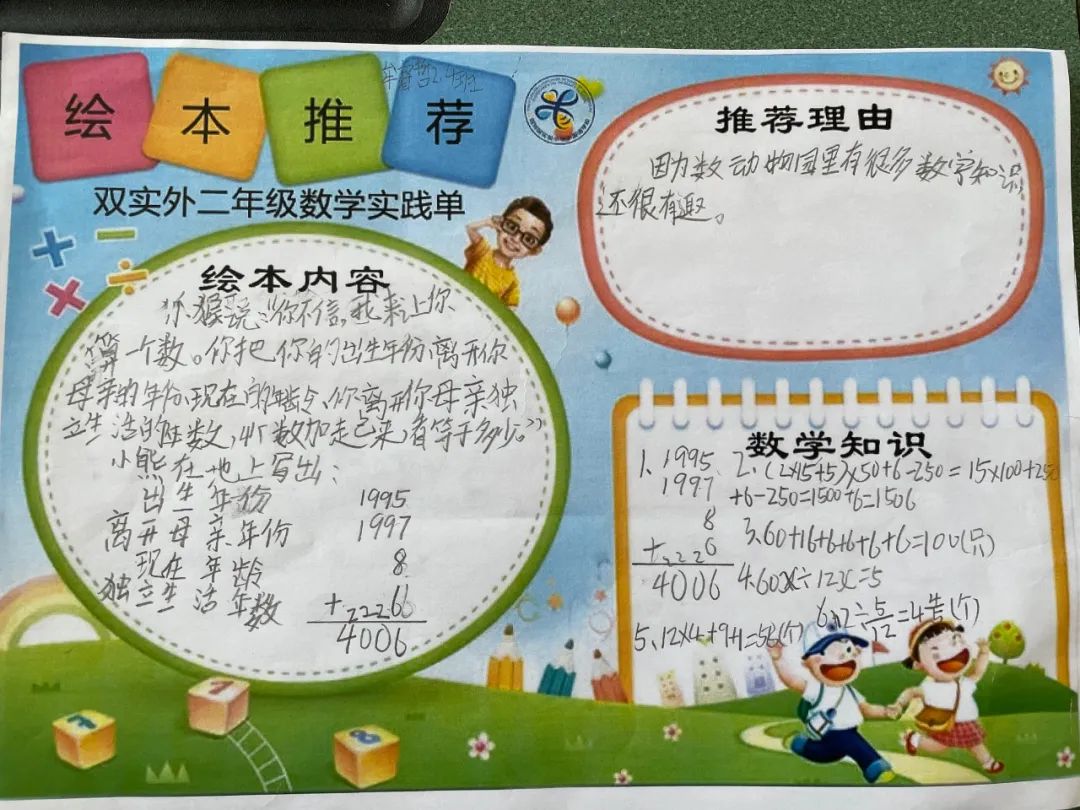 绘本推荐
2.4班
双实外二年级数学实践单
绘本内容
小猴说:“你不信,我来让你
算一个数。你把你的出生年份、离开你
母亲的年份、现在的年龄、你离开你母亲独
立生活的年数,4个数加走已来,看等于多少。”
小熊在地上写出:
出生年份 1995
离开母亲年份 1997
现在年龄 8
独立生活年数 + 6
4006
推荐理由
因为数动物园里有很多数学知识,
还很有趣。
数学知识
1、1995
1997
8
+ 6
4006
2、(2×15+5)×50+6-250=15×100+250
+6-250=1500+6=1506
3、60+16+6+6+6+6=100(只)
4、60X÷12X=5
5、12×4+9+1=58(个)